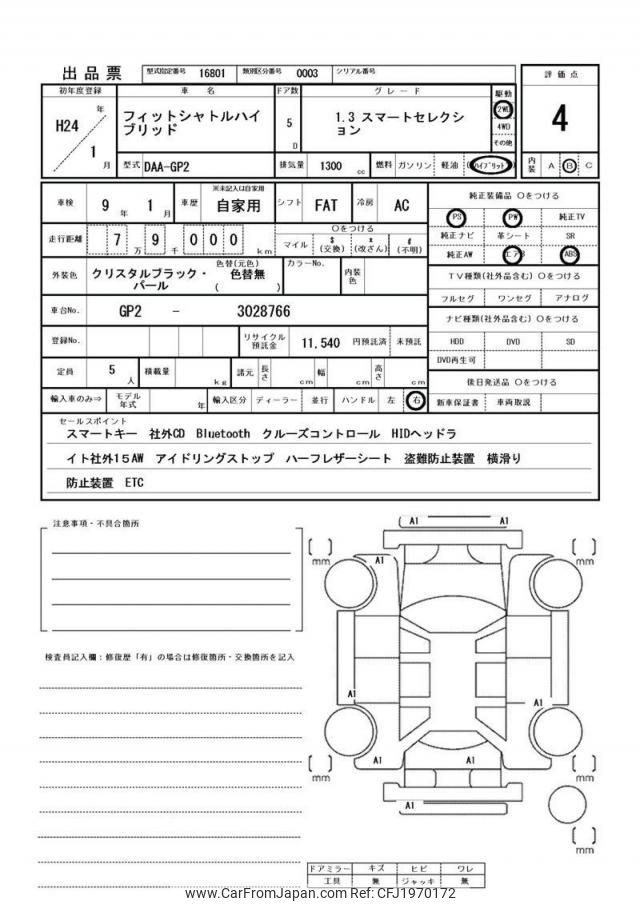 出品票 型式指定番号 16801 類別区分番号 0003 シリアル番号
評価点
4
内装 A B C
初年度登録 車名 ドア数 グレード 駆動
H24 年 1 月
フィットシャトルハイ
ブリッド
5 D
1.3 スマートセレクシ
ョン
2WD
4WD
その他
型式 DAA-GP2 排気量 1300 cc 燃料 ガソリン 軽油 (ハイブリット)
車検 9 年 1 月 車歴 ※未記入は自家用 自家用 シフト FAT 冷房 AC
走行距離 7 万 9 千 0 0 0 km
〇をつける
マイル $ (交換) * (改ざん) # (不明)
外装色 クリスタルブラック・
パール
色替(元色)
色替無
( )
カラーNo. 内装色
車台No. GP2 - 3028766
登録No. リサイクル預託金 11,540 円預託済 未預託
定員 5 人 積載量 kg 諸元 長さ cm 幅 cm 高さ cm
輸入車のみ⇒ モデル年式 年 輸入区分 ディーラー 並行 ハンドル 左 右
純正装備品 〇をつける
PS PW 純正TV
純正ナビ 革シート SR
純正AW エアB ABS
TV種類(社外品含む) 〇をつける
フルセグ ワンセグ アナログ
ナビ種類(社外品含む) 〇をつける
HDD DVD SD
DVD再生可
後日発送品 〇をつける
新車保証書 車両取説
セールスポイント
スマートキー 社外CD Bluetooth クルーズコントロール HIDヘッドラ
イト社外15AW アイドリングストップ ハーフレザーシート 盗難防止装置 横滑り
防止装置 ETC
注意事項・不具合箇所
検査員記入欄：修復歴「有」の場合は修復箇所・交換箇所を記入
A1 A1
[ ] mm
A1
[ ] mm
A1
A1
[ ] mm
A1 A1
[ ] mm
A1
[ ] mm
ドアミラー キズ ヒビ ワレ
工具 無 ジャッキ 無
www.CarFromJapan.com Ref No: CFJ1970172